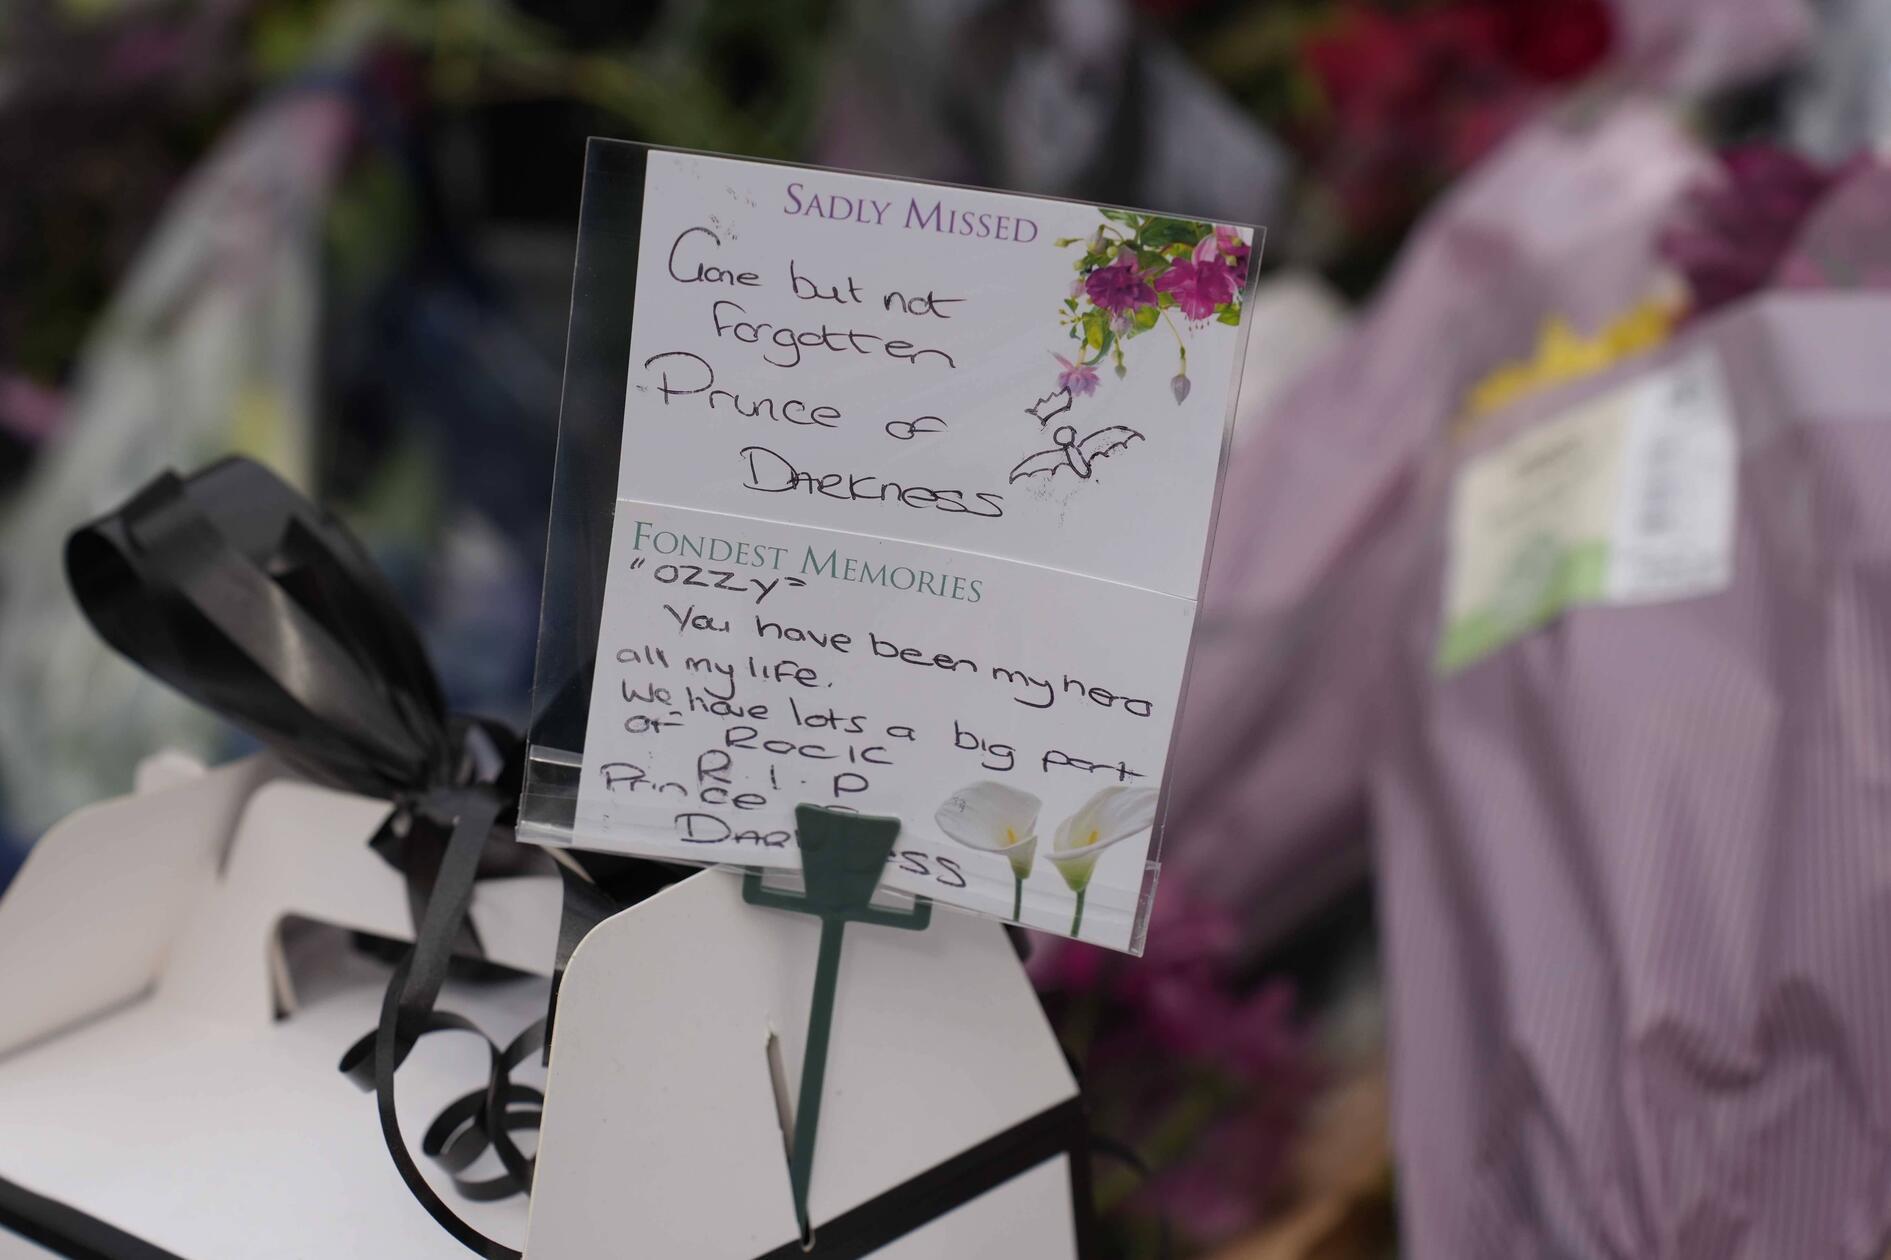 SADLY MISSED
Gone but not
forgotten
Prince of
DARKNESS
FONDEST MEMORIES
"OZZY"
You have been my hero
all my life.
We have lots a big part
of ROCK
R.I.P
Prince
DARKNESS